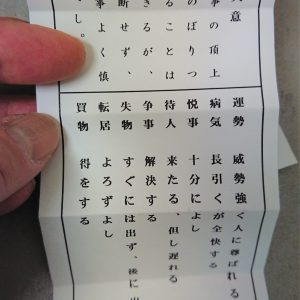 意
事の頂上
のぼりつ
ることは
きるが、
断せず、
よく慎
事
し。
運勢 威勢強く人に尊ばれる
病気 長引くが全快する
悦事 十分によし
待人 来たる、但し遅れる
争事 解決する
失物 すぐには出ず、後に出
転居 よろずよし
買物 得をする